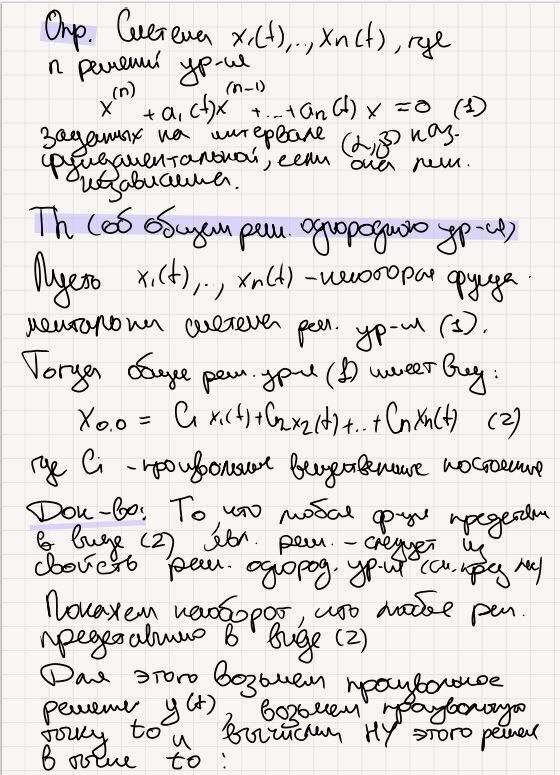 Опр. Система x₁(t),.., xₙ(t), где
n решений ур-ия
x⁽ⁿ⁾ + a₁(t)x⁽ⁿ⁻¹⁾ +...+ aₙ(t) x = 0 (1)
заданных на интервале (α,β) наз.
фундаментальной, если она лин.
независима.
Th (об общем реш. однородного ур-ия)
Пусть x₁(t),.., xₙ(t) - некоторая фунда-
ментальная система реш. ур-ия (1).
Тогда общее реш. ур-ия (1) имеет вид:
X₀.₀ = C₁ x₁(t)+C₂x₂(t)+..+CₙXₙ(t) (2)
где Ci - произвольные вещественные постоянные
Док-во: То, что любая функ представ
в виде (2) явл. реш. - следует из
свойств реш. однород. ур-ия (см. пред лк)
Покажем наоборот, что любое реш.
представимо в виде (2)
Для этого возьмем произвольное
решение y(t), возьмем произвольную
точку to и вычислим НУ этого решен
в точке to :